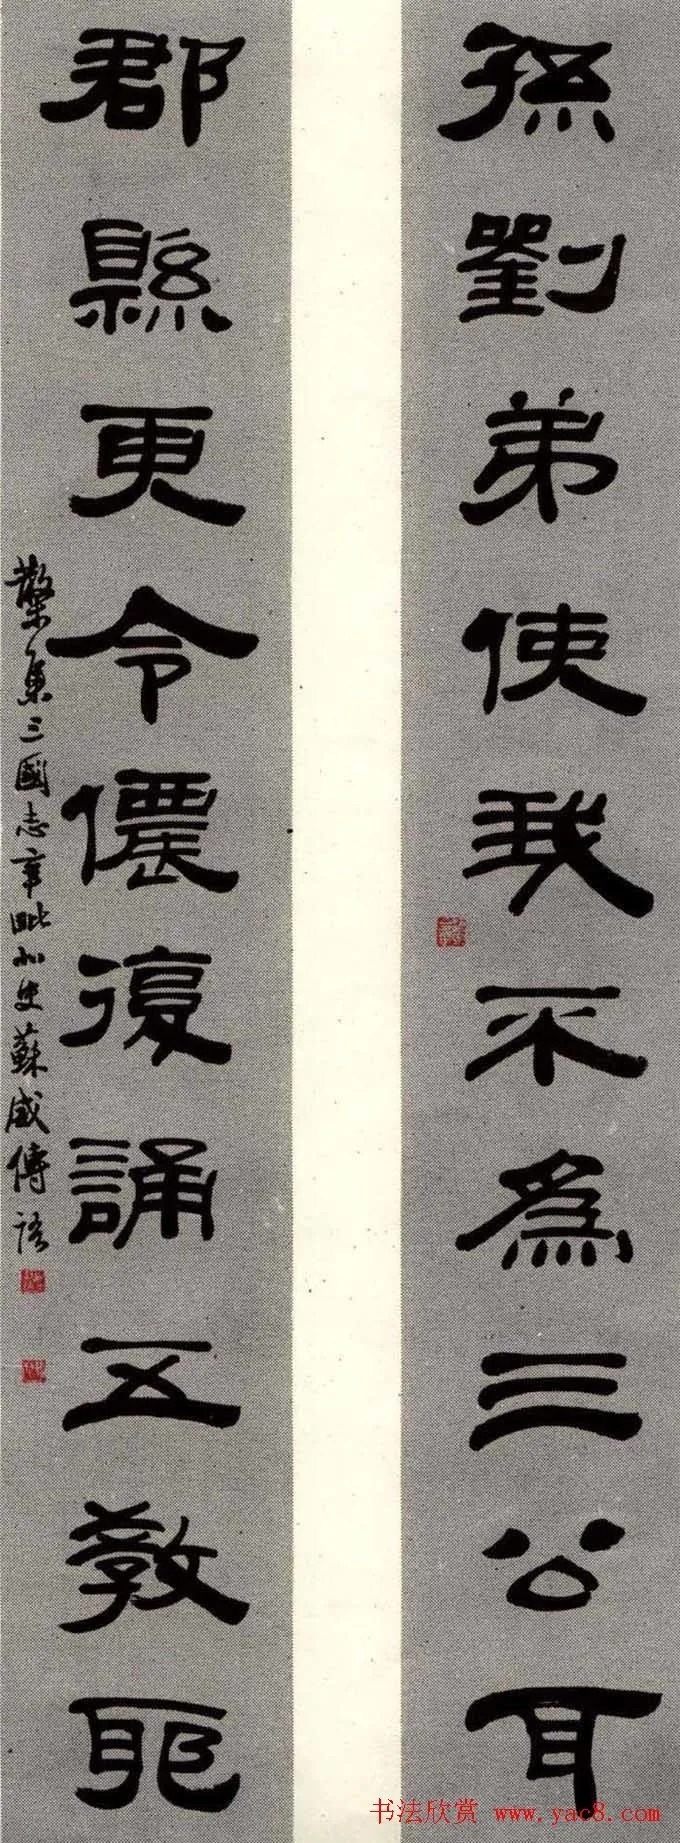 孫劉弟使我不為三公耳
郡縣更令儂復誦五教耶
繫集三國志辛毗北史蘇威傳語
书法欣赏 www.yac8.com